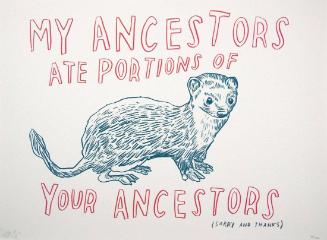 MY ANCESTORS
ATE PORTIONS OF
YOUR ANCESTORS
(SORRY AND THANKS)